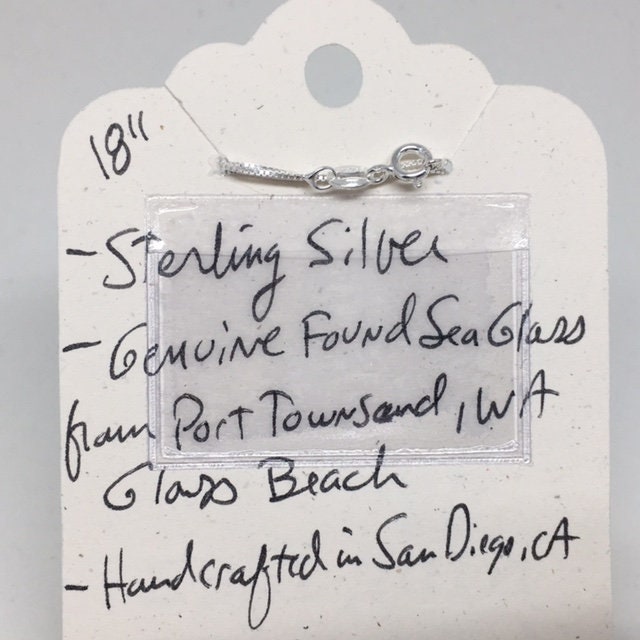 18"
- Sterling Silver
- Genuine Found Sea Glass
from Port Townsend, WA
Glass Beach
- Handcrafted in San Diego, CA